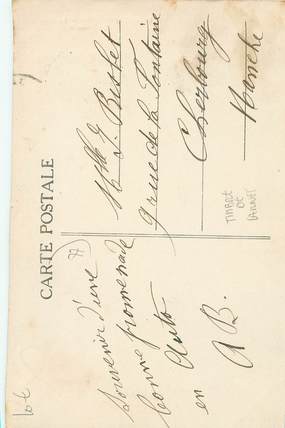 CARTE POSTALE
Souvenir d'une
bonne promenade
en Auto
A B.
Mlle J. Busset
9 rue de la Fontaine
Cherbourg
Manche
TIMBRE
DE
lot
77